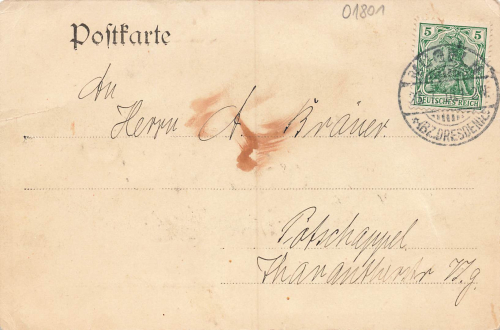 01801
Postkarte
5 5
DEUTSCHES REICH
(BZ. DRESDEN)
An
Herrn A. Bräuer.
Potschappel
Tharandterstr